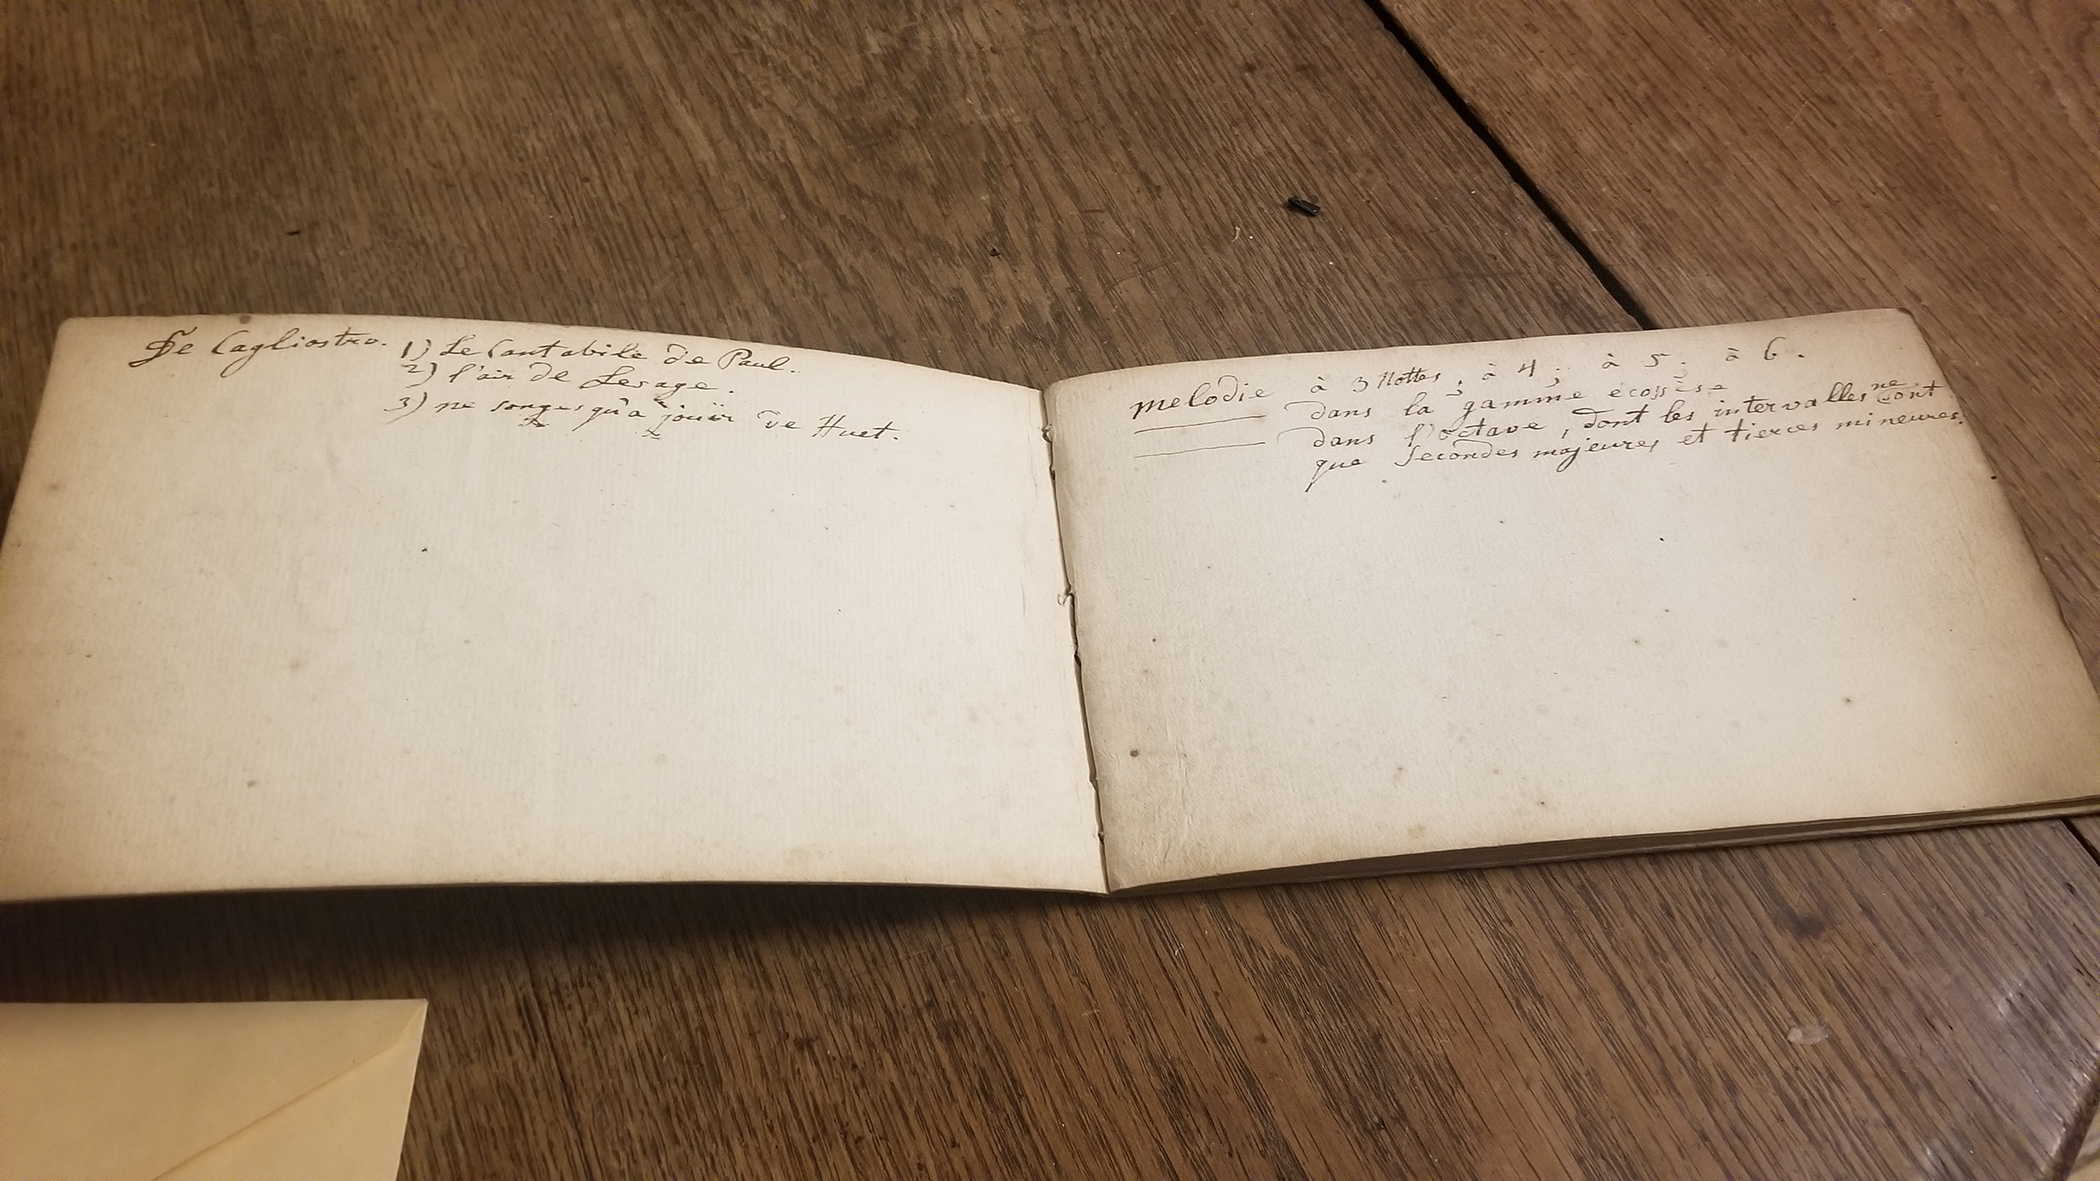 De Cagliostro. 1) Le Cantabile de Paul.
2) l'air de Lesage.
3) ne songes qu'a jouïr de Huet.
melodie à 3 Nottes, à 4; à 5; à 6.
dans la gamme écossèse
dans l'octave, dont les intervalles ne sont
que secondes majeures et tierces mineures.